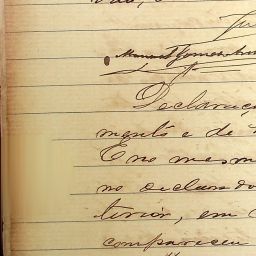 Manoel Gomes
Declaraç
mento e de
E no mesm
no declarado
terior, em
compareceu